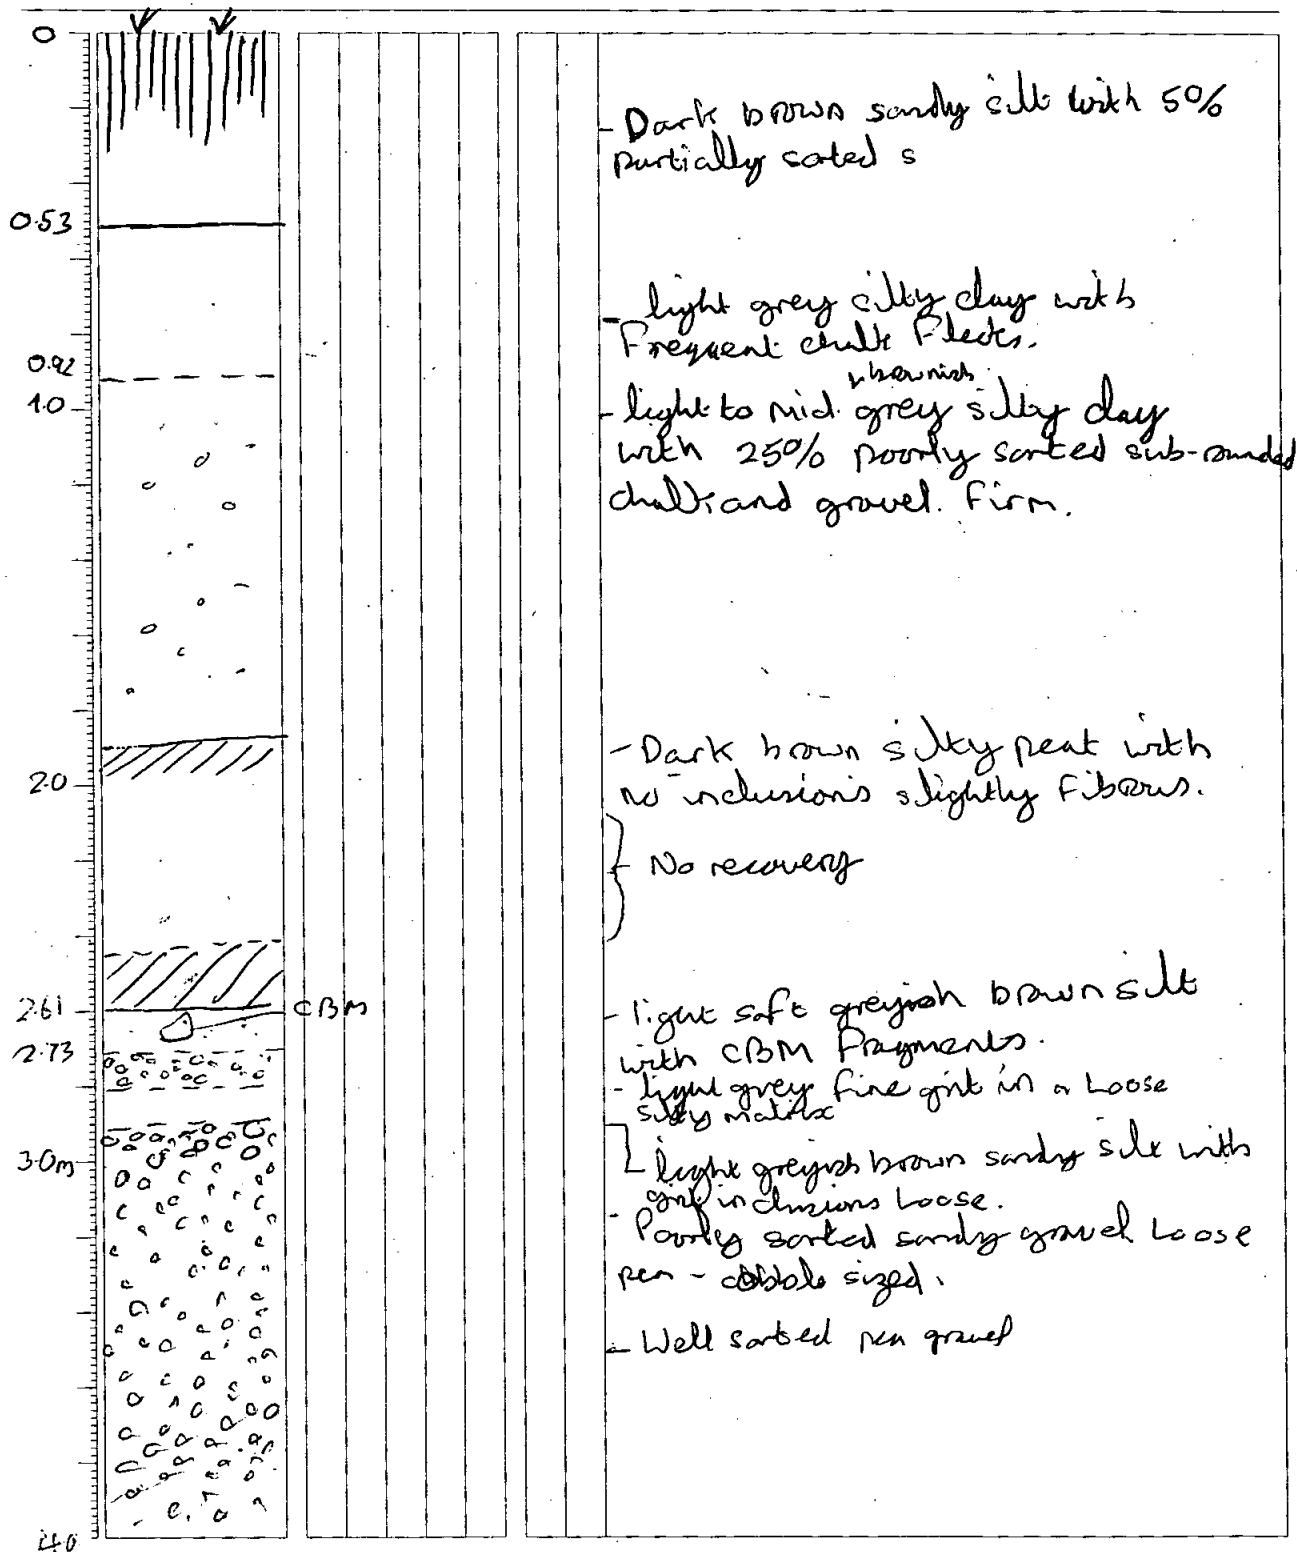 0
- Dark brown sandy silt with 5%
partially sorted s
0.53
- light grey silty clay with
Frequent chalk Flecks.
0.92
brownish
1.0
- light to mid grey silty clay
with 25% poorly sorted sub-rounded
chalk and gravel. Firm.
- Dark brown silty peat with
2.0
no inclusions slightly Fibrous.
- No recovery
2.61
CBM
- light soft greyish brown silt
with CBM Fragments.
2.73
- light grey fine grit in a Loose
silty matrix
3.0m
light greyish brown sandy silt with
grit inclusions Loose.
- Poorly sorted sandy gravel Loose
pea - cobble sized.
- Well sorted pea gravel
4.0